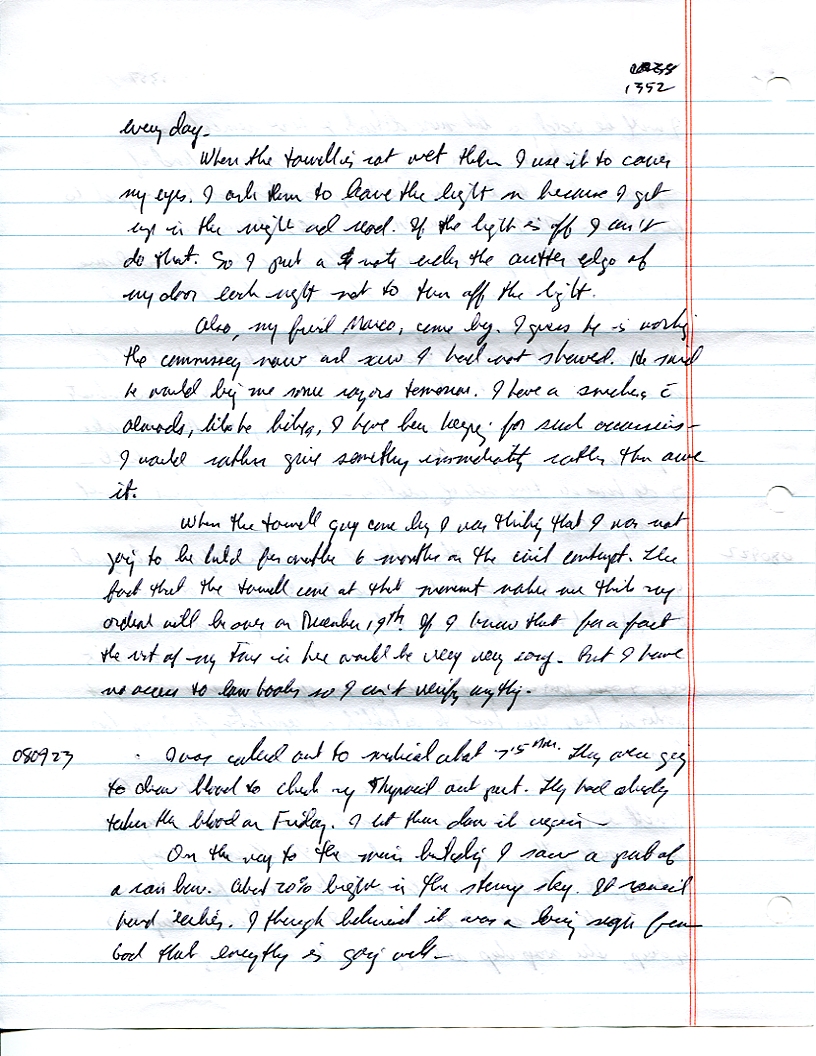 1352
every day.
When the towell is not wet then I use it to cover
my eyes. I ask them to leave the light on because I get
up in the night and read. If the light is off I can't
do that. So I put a note under the outter edge of
my door each night not to turn off the light.
Also, my friend Marco, came by. I guess he is working
the commissey now and saw I had not shaved. He said
he would bring me some razors tomorrow. I have a snickers c̄
almonds, like he likes, I have been keeping for such occassions-
I would rather give something immediately rather than owe
it.
When the towell guy came by I was thinking that I was not
going to be held for another 6 months on the civil contempt. The
fact that the towell came at that moment makes me think my
ordeal will be over on December 19th. If I knew that for a fact
the rest of my time in here would be very very easy. But I have
no access to law books so I can't verify anything.
080923
I was called out to medical about They were going
to draw blood to check my Thyroid out put. They had already
taken the blood on Friday. I let them draw it again-
On the way to the main building I saw a part of
a rain bow. About 20% bright in the stormy sky. It
hard I though believed it was a loving sign from
God that everything is going well-